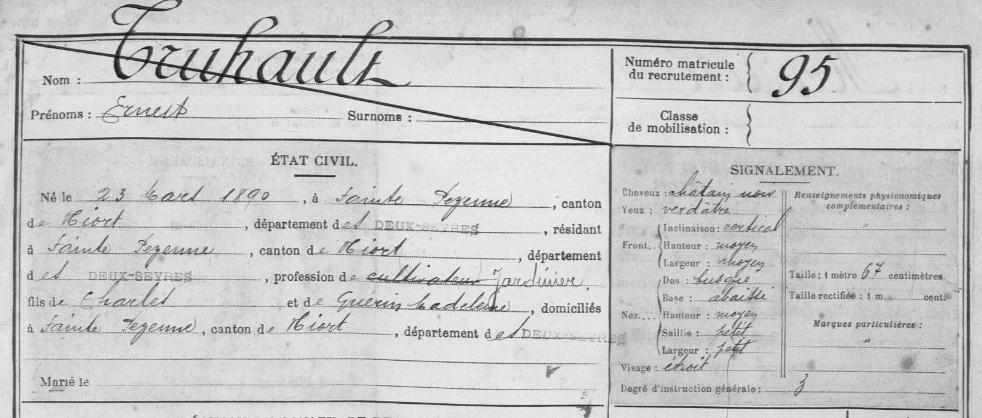 Nom : Truhault
Prénoms : Ernest Surnoms :
Numéro matricule
du recrutement : 95
Classe
de mobilisation :
ÉTAT CIVIL.
Né le 23 Mars 1890, à Sainte Pezenne, canton
de Niort, département des DEUX-SÈVRES, résidant
à Sainte Pezenne, canton de Niort, département
des DEUX-SÈVRES, profession de cultivateur Jardinier,
fils de Charles et de Guérin Madeleine, domiciliés
à Sainte Pezenne, canton de Niort, département des DEUX-SÈVRES
Marié le
SIGNALEMENT.
Cheveux : châtain noir
Yeux : verdâtre
Front. Inclinaison : vertical
Hauteur : moyen
Largeur : moyen
Nez. Dos : busqué
Base : abaissé
Hauteur : moyen
Saillie : petit
Largeur : petit
Visage : étroit
Renseignements physionomiques
complémentaires :
"
Taille : 1 mètre 67 centimètres.
Taille rectifiée : 1 m. cent.
Marques particulières :
"
Degré d'instruction générale : 3